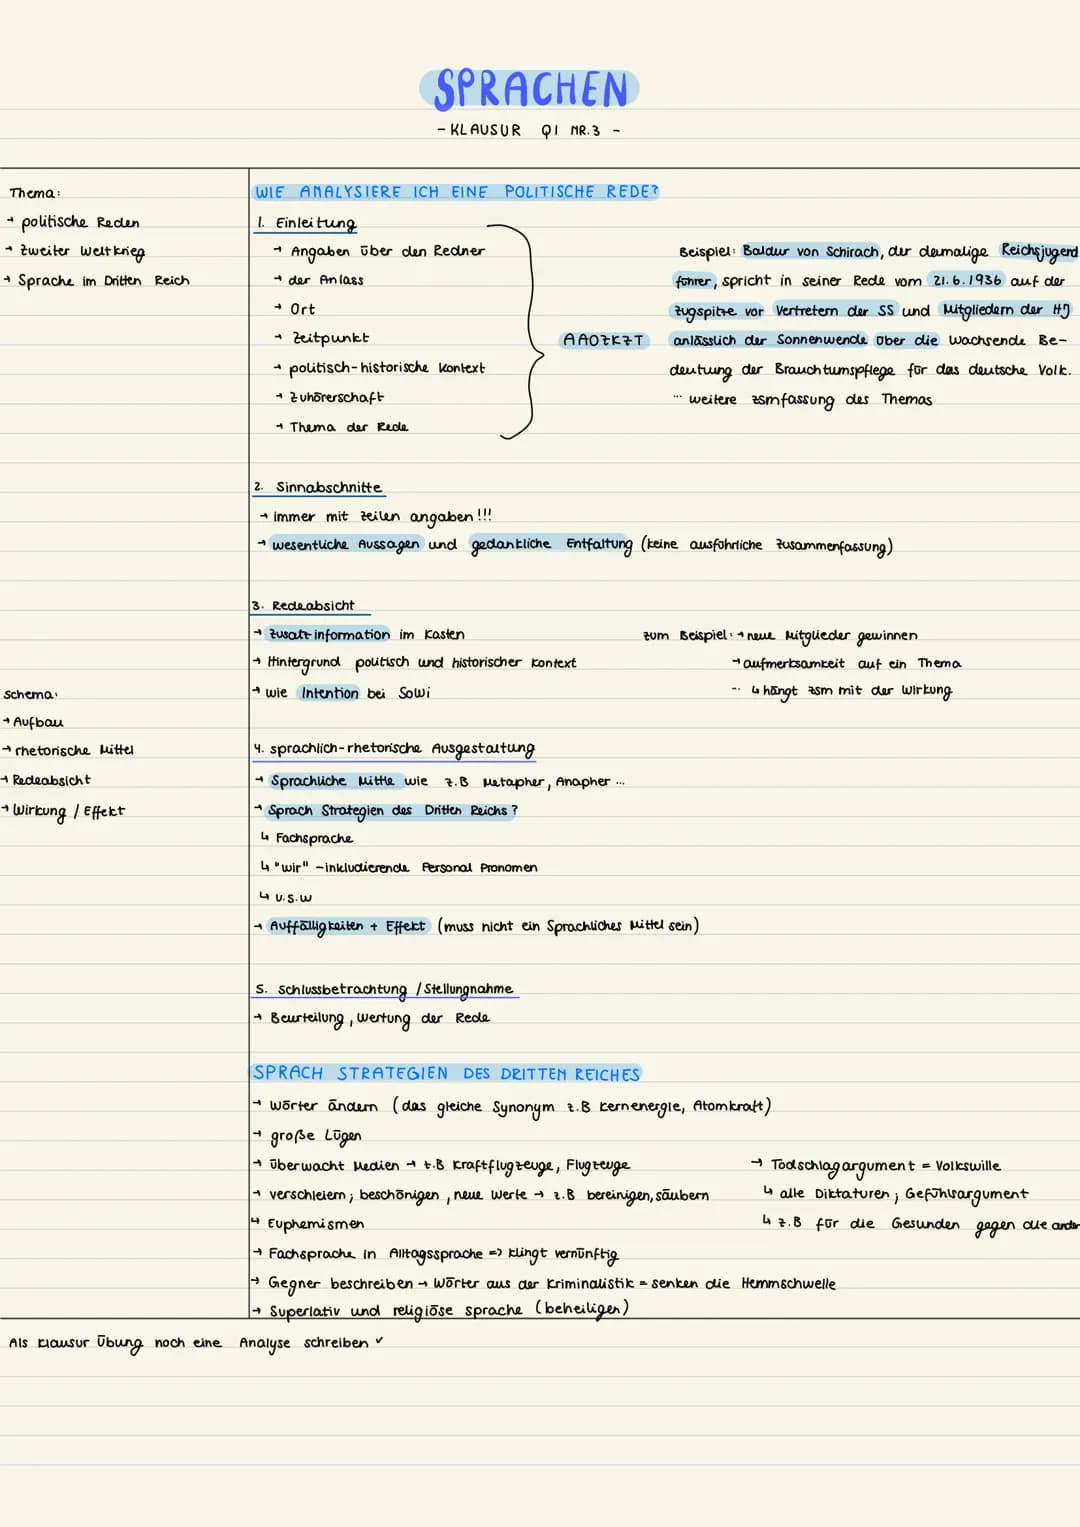 SPRACHEN
- KLAUSUR Q1 NR.3 -
Thema:
→ politische Reden
→ Zweiter Weltkrieg
→ Sprache im Dritten Reich
schema:
→ Aufbau
→ rhetorische Mittel
→ Redeabsicht
→ Wirkung / Effekt
WIE ANALYSIERE ICH EINE POLITISCHE REDE?
1. Einleitung
→ Angaben über den Redner
→ der Anlass
→ Ort
→ Zeitpunkt
→ politisch-historische Kontext
→ Zuhörerschaft
→ Thema der Rede
AAOZKZT
Beispiel: Baldur von Schirach, der damalige Reichsjugend
führer, spricht in seiner Rede vom 21.6.1936 auf der
Zugspitze vor Vertretern der SS und Mitgliedern der HJ
anlässlich der Sonnenwende über die wachsende Be-
deutung der Brauchtumspflege für das deutsche Volk.
... weitere zsmfassung des Themas
2. Sinnabschnitte
→ immer mit Zeilen angaben!!!
→ wesentliche Aussagen und gedankliche Entfaltung (keine ausführliche Zusammenfassung)
3. Redeabsicht
→ Zusatzinformation im Kasten
→ Hintergrund politisch und historischer Kontext
→ wie Intention bei SoWi
zum Beispiel: → neue Mitglieder gewinnen
→ aufmerksamkeit auf ein Thema
... ↳ hängt zsm mit der Wirkung
4. sprachlich-rhetorische Ausgestaltung
→ Sprachliche Mittle wie z.B Metapher, Anapher ...
→ Sprach Strategien des Dritten Reichs?
↳ Fachsprache
↳ "wir" - inkludierende Personal Pronomen
↳ u.s.w
→ Auffälligkeiten + Effekt (muss nicht ein Sprachliches Mittel sein)
5. Schlussbetrachtung / Stellungnahme
→ Beurteilung, Wertung der Rede
SPRACH STRATEGIEN DES DRITTEN REICHES
→ Wörter ändern (das gleiche Synonym z.B Kernenergie, Atomkraft)
→ große Lügen
→ überwacht Medien → z.B Kraftflugzeuge, Flugzeuge
→ verschleiern; beschönigen, neue Werte → z.B bereinigen, säubern
↳ Euphemismen
→ Fachsprache in Alltagssprache => klingt vernünftig
→ Gegner beschreiben → Wörter aus der Kriminalistik = senken die Hemmschwelle
→ Superlativ und religiöse sprache (beheiligen)
→ Todschlagargument = Volkswille
↳ alle Diktaturen; Gefühlsargument
↳ z.B für die Gesunden gegen die
Als Klausur Übung noch eine Analyse schreiben ✓